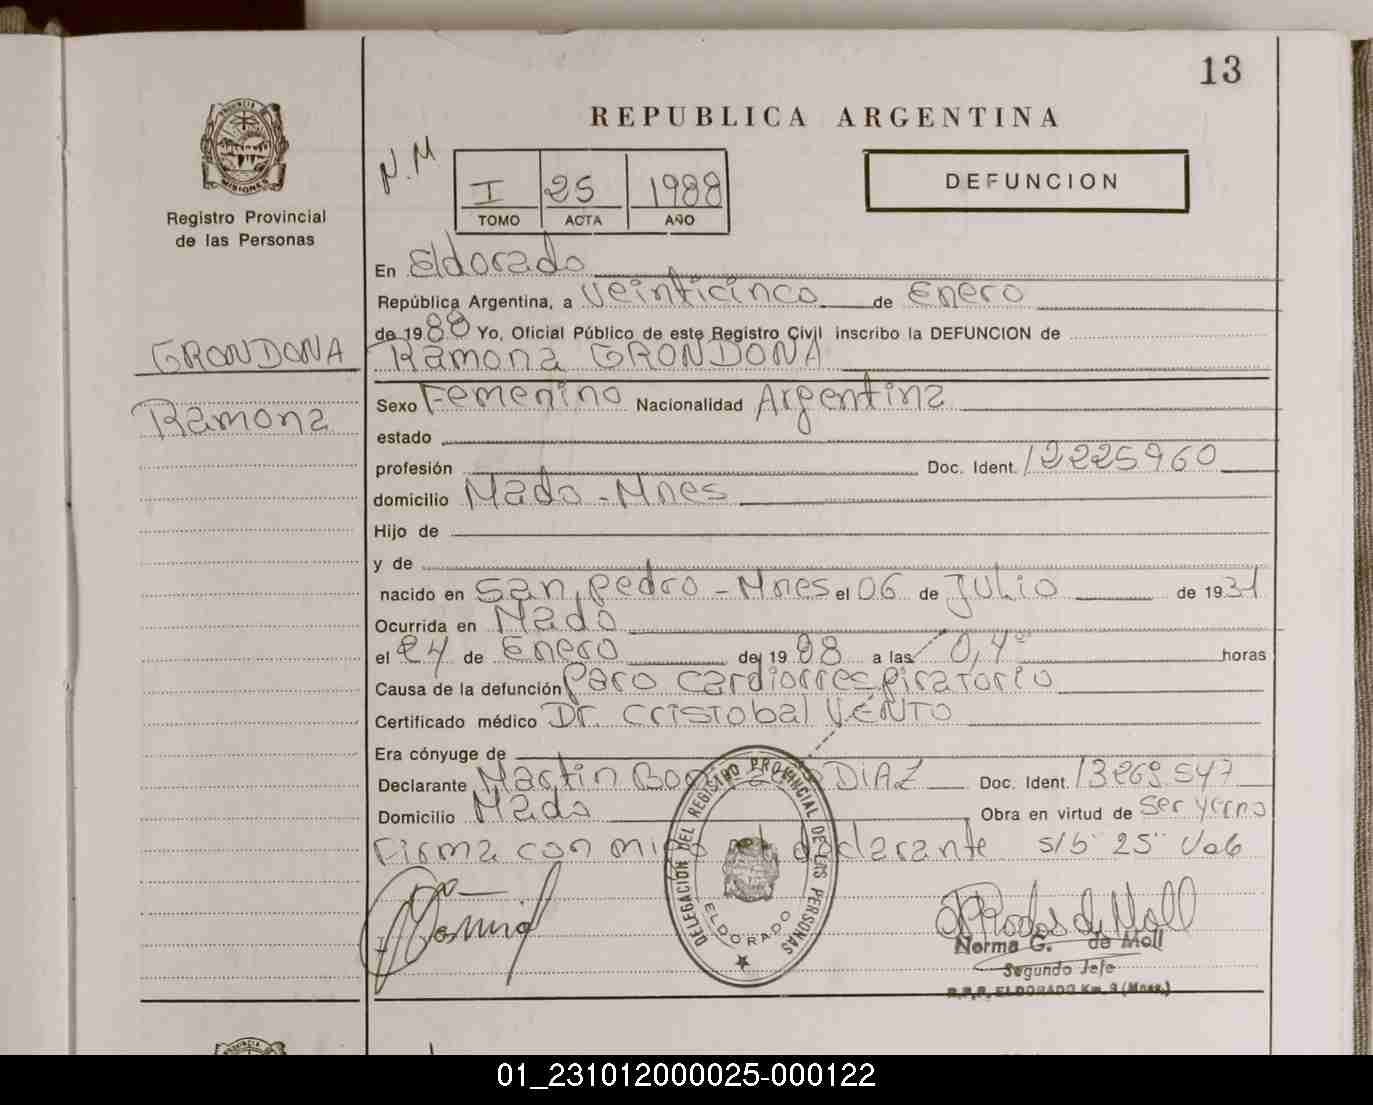 13
PROVINCIA DE
MISIONES
REPUBLICA ARGENTINA
N.M
I 25 1988
TOMO ACTA AÑO
DEFUNCION
Registro Provincial
de las Personas
En Eldorado
República Argentina, a Veinticinco de Enero
de 1988 Yo, Oficial Público de este Registro Civil inscribo la DEFUNCION de
GRONDONA
Ramona GRONDONA
Ramona
Sexo Femenino Nacionalidad Argentina
estado
profesión Doc. Ident. 12225960
domicilio Mado - Mnes
Hijo de
y de
nacido en San Pedro - Mnes el 06 de Julio de 1931
Ocurrida en Mado
el 24 de Enero de 1988 a las 0,4 horas
Causa de la defunción Paro cardiorrespiratorio
Certificado médico Dr. Cristobal VENTO
Era cónyuge de
Declarante Martin DIAZ Doc. Ident. 13269547
Domicilio Mado Obra en virtud de Ser Yerno
Firma con migo el declarante s/b "25" Vale
DELEGACION DEL REGISTRO PROVINCIAL DE LAS PERSONAS
ELDORADO
Norma G. de Moll
Segundo Jefe
R.P.P. ELDORADO Km. 9 (Mnes.)
01_231012000025-000122